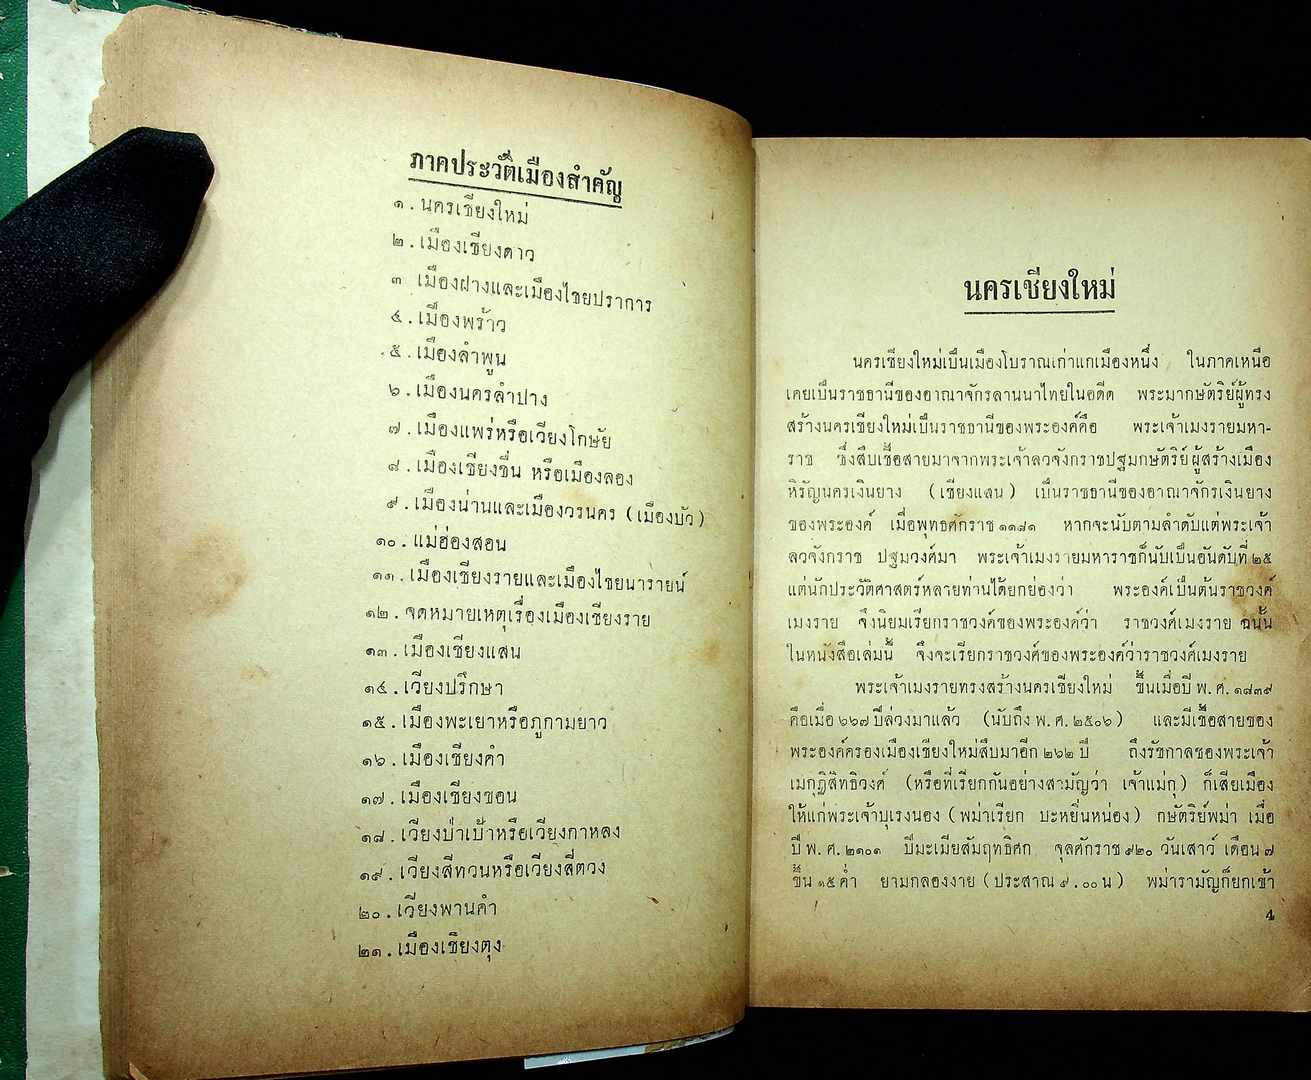 ภาคประวัติเมืองสำคัญ
๑. นครเชียงใหม่
๒. เมืองเชียงดาว
๓ เมืองฝางและเมืองไชยปราการ
๔. เมืองพร้าว
๕. เมืองลำพูน
๖. เมืองนครลำปาง
๗. เมืองแพร่หรือเวียงโกษัย
๘. เมืองเชียงชื่น หรือเมืองลอง
๙. เมืองน่านและเมืองวรนคร (เมืองบัว)
๑๐. แม่ฮ่องสอน
๑๑. เมืองเชียงรายและเมืองไชยนารายน์
๑๒. จดหมายเหตุเรื่องเมืองเชียงราย
๑๓. เมืองเชียงแสน
๑๔. เวียงปรึกษา
๑๕. เมืองพะเยาหรือภูกามยาว
๑๖. เมืองเชียงคำ
๑๗. เมืองเชียงของ
๑๘. เวียงป่าเป้าหรือเวียงกาหลง
๑๙. เวียงสีทวนหรือเวียงสี่ตวง
๒๐. เวียงพานคำ
๒๑. เมืองเชียงตุง
นครเชียงใหม่
นครเชียงใหม่เป็นเมืองโบราณเก่าแก่เมืองหนึ่ง ในภาคเหนือ
เคยเป็นราชธานีของอาณาจักรลานนาไทยในอดีต พระมากษัตริย์ผู้ทรง
สร้างนครเชียงใหม่เป็นราชธานีของพระองค์คือ พระเจ้าเมงรายมหา-
ราช ซึ่งสืบเชื้อสายมาจากพระเจ้าลวจังกราชปฐมกษัตริย์ผู้สร้างเมือง
หิรัญนครเงินยาง (เชียงแสน) เป็นราชธานีของอาณาจักรเงินยาง
ของพระองค์ เมื่อพุทธศักราช ๑๑๘๑ หากจะนับตามลำดับแต่พระเจ้า
ลวจังกราช ปฐมวงศ์มา พระเจ้าเมงรายมหาราชก็นับเป็นอันดับที่ ๒๕
แต่นักประวัติศาสตร์หลายท่านได้ยกย่องว่า พระองค์เป็นต้นราชวงค์
เมงราย จึงนิยมเรียกราชวงค์ของพระองค์ว่า ราชวงศ์เมงราย ฉนั้น
ในหนังสือเล่มนี้ จึงจะเรียกราชวงศ์ของพระองค์ว่าราชวงศ์เมงราย
พระเจ้าเมงรายทรงสร้างนครเชียงใหม่ ขึ้นเมื่อปี พ. ศ. ๑๘๓๙
คือเมื่อ ๖๖๗ ปีล่วงมาแล้ว (นับถึง พ. ศ. ๒๕๐๖) และมีเชื้อสายของ
พระองค์ครองเมืองเชียงใหม่สืบมาอีก ๒๖๒ ปี ถึงรัชกาลของพระเจ้า
เมกุฏิสิทธิวงศ์ (หรือที่เรียกกันอย่างสามัญว่า เจ้าแม่กุ) ก็เสียเมือง
ให้แก่พระเจ้าบุเรงนอง (พม่าเรียก บะหยิ่นหน่อง) กษัตริย์พม่า เมื่อ
ปี พ. ศ. ๒๑๐๑ ปีมะเมียสัมฤทธิศก จุลศักราช ๙๒๐ วันเสาว์ เดือน ๗
ขึ้น ๑๕ ค่ำ ยามกลองงาย (ประสาณ ๙. ๐๐ น) พม่ารามัญก็ยกเข้า